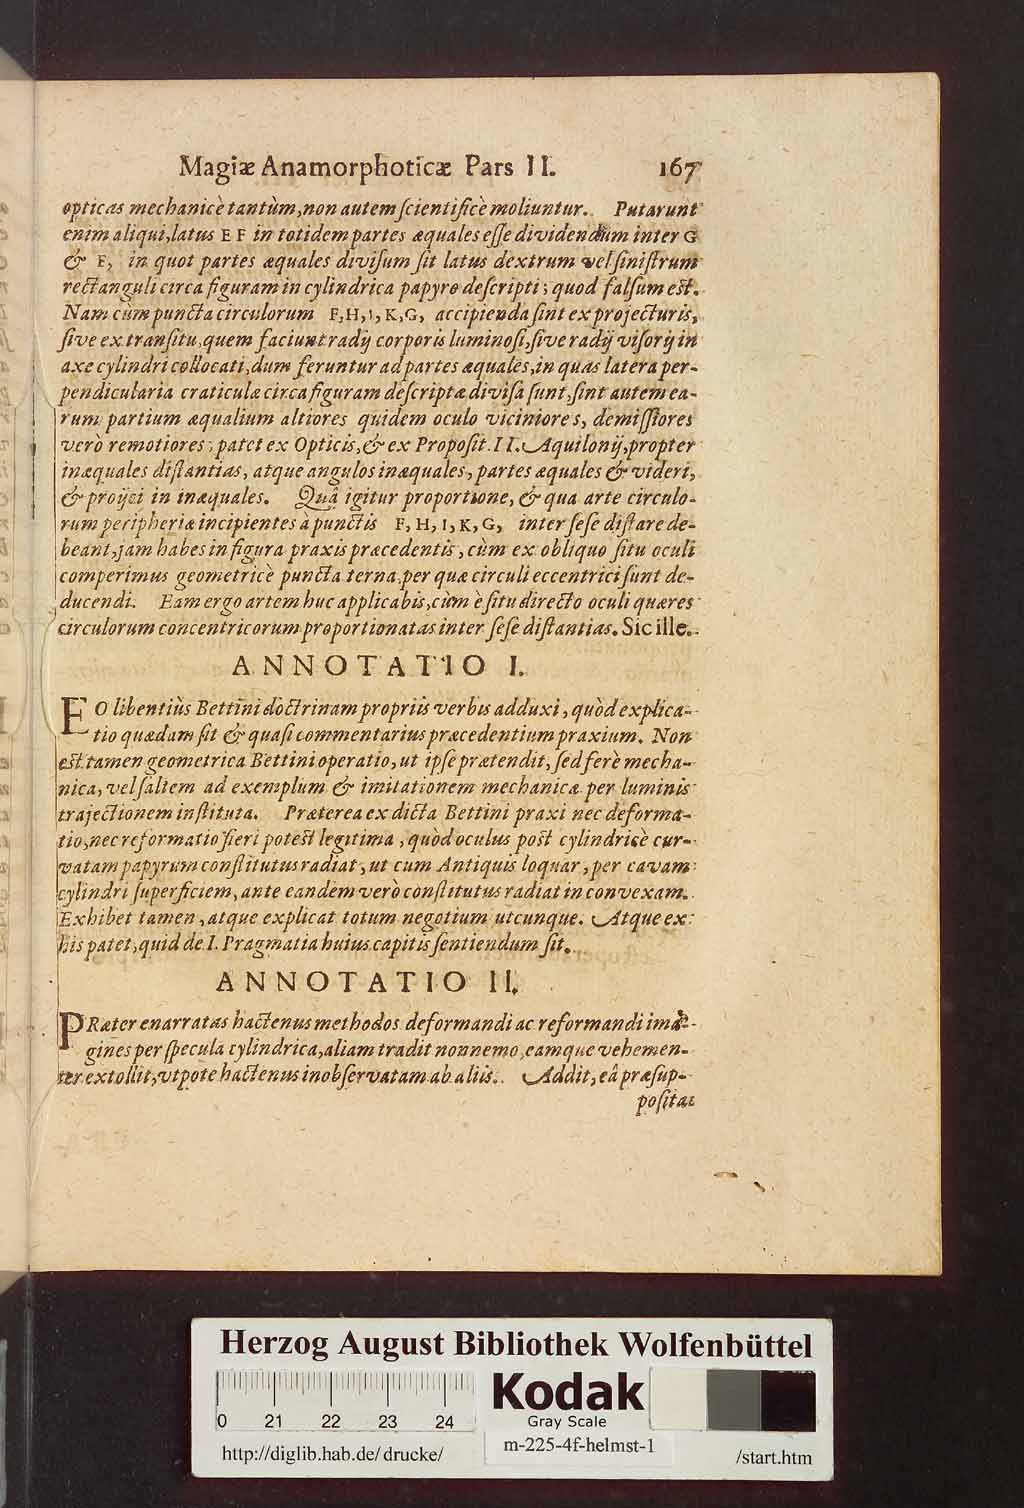 Magiæ Anamorphoticæ Pars II. 167
opticas mechanicè tantùm, non autem ſcientificè moliuntur. Putarunt
enim aliqui, latus E F in totidem partes æquales eſſe dividendum inter G
& F, in quot partes æquales diviſum ſit latus dextrum vel ſiniſtrum
rectanguli circa figuram in cylindrica papyro deſcripti; quod falſum eſt.
Nam cùm puncta circulorum F, H, I, K, G, accipienda ſint ex projecturis,
ſive ex tranſitu, quem faciunt radij corporis luminoſi, ſive radij viſorij in
axe cylindri collocati, dum feruntur ad partes æquales, in quas latera per-
pendicularia craticulæ circa figuram deſcriptæ diviſa ſunt, ſint autem ea-
rum partium æqualium altiores quidem oculo viciniores, demiſſiores
verò remotiores; patet ex Opticis, & ex Propoſit. II. Aquilonij, propter
inæquales diſtantias, atque angulos inæquales, partes æquales & videri,
& proijci in inæquales. Quâ igitur proportione, & qua arte circulo-
rum peripheriæ incipientes à punctis F, H, I, K, G, inter ſeſe diſtare de-
beant, jam habes in figura praxis præcedentis, cùm ex obliquo ſitu oculi
comperimus geometricè puncta terna, per quæ circuli eccentrici ſunt de-
ducendi. Eam ergo artem huc applicabis, cùm è ſitu directo oculi quæres
circulorum concentricorum proportionatas inter ſeſe diſtantias. Sic ille.
ANNOTATIO I.
EO libentiùs Bettini doctrinam propriis verbis adduxi, quòd explica-
tio quædam ſit & quaſi commentarius præcedentium praxium. Non
eſt tamen geometrica Bettini operatio, ut ipſe prætendit, ſed ferè mecha-
nica, vel ſaltem ad exemplum & imitationem mechanicæ per luminis
trajectionem inſtituta. Præterea ex dicta Bettini praxi nec deforma-
tio, nec reformatio fieri poteſt legitima, quòd oculus poſt cylindricè cur-
vatam papyrum conſtitutus radiat, ut cum Antiquis loquar, per cavam
cylindri ſuperficiem, ante eandem verò conſtitutus radiat in convexam.
Exhibet tamen, atque explicat totum negotium utcunque. Atque ex
his patet, quid de I. Pragmatia huius capitis ſentiendum ſit.
ANNOTATIO II.
PRæter enarratas hactenus methodos deformandi ac reformandi ima-
gines per ſpecula cylindrica, aliam tradit nonnemo, eamque vehemen-
ter extollit, vtpote hactenus inobſervatam ab aliis. Addit, eâ præſup-
poſitâ
Herzog August Bibliothek Wolfenbüttel
0 21 22 23 24
Kodak
Gray Scale
http://diglib.hab.de/drucke/
m-225-4f-helmst-1
/start.htm